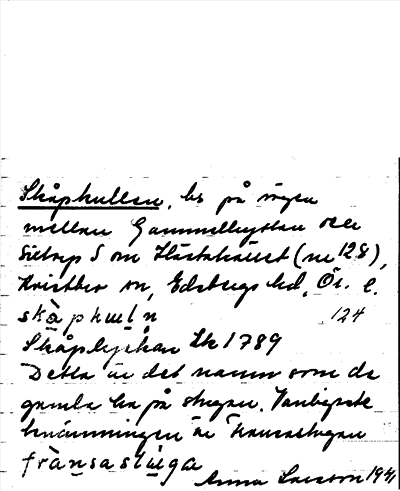 Skåpkullen, ls på vägen
mellan Gammelhyttan och
S om Hästahaget (nr 128),
Kvistbro sn, Edsbergs hd, Ör. l.
skàpkuḷn 124
Skåplyckan Lk 1789
Detta är det namn som de
gamla ha på stugan. Vanligaste
benämningen är Fransastugan
frànsastùga
Anna Larsson 1941